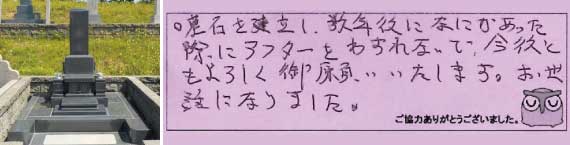 ○墓石を建立し、数年後になにかあった
際にアフターをわすれないで、今後と
もよろしく御願いいたします。お世
話になりました。
ご協力ありがとうございました。